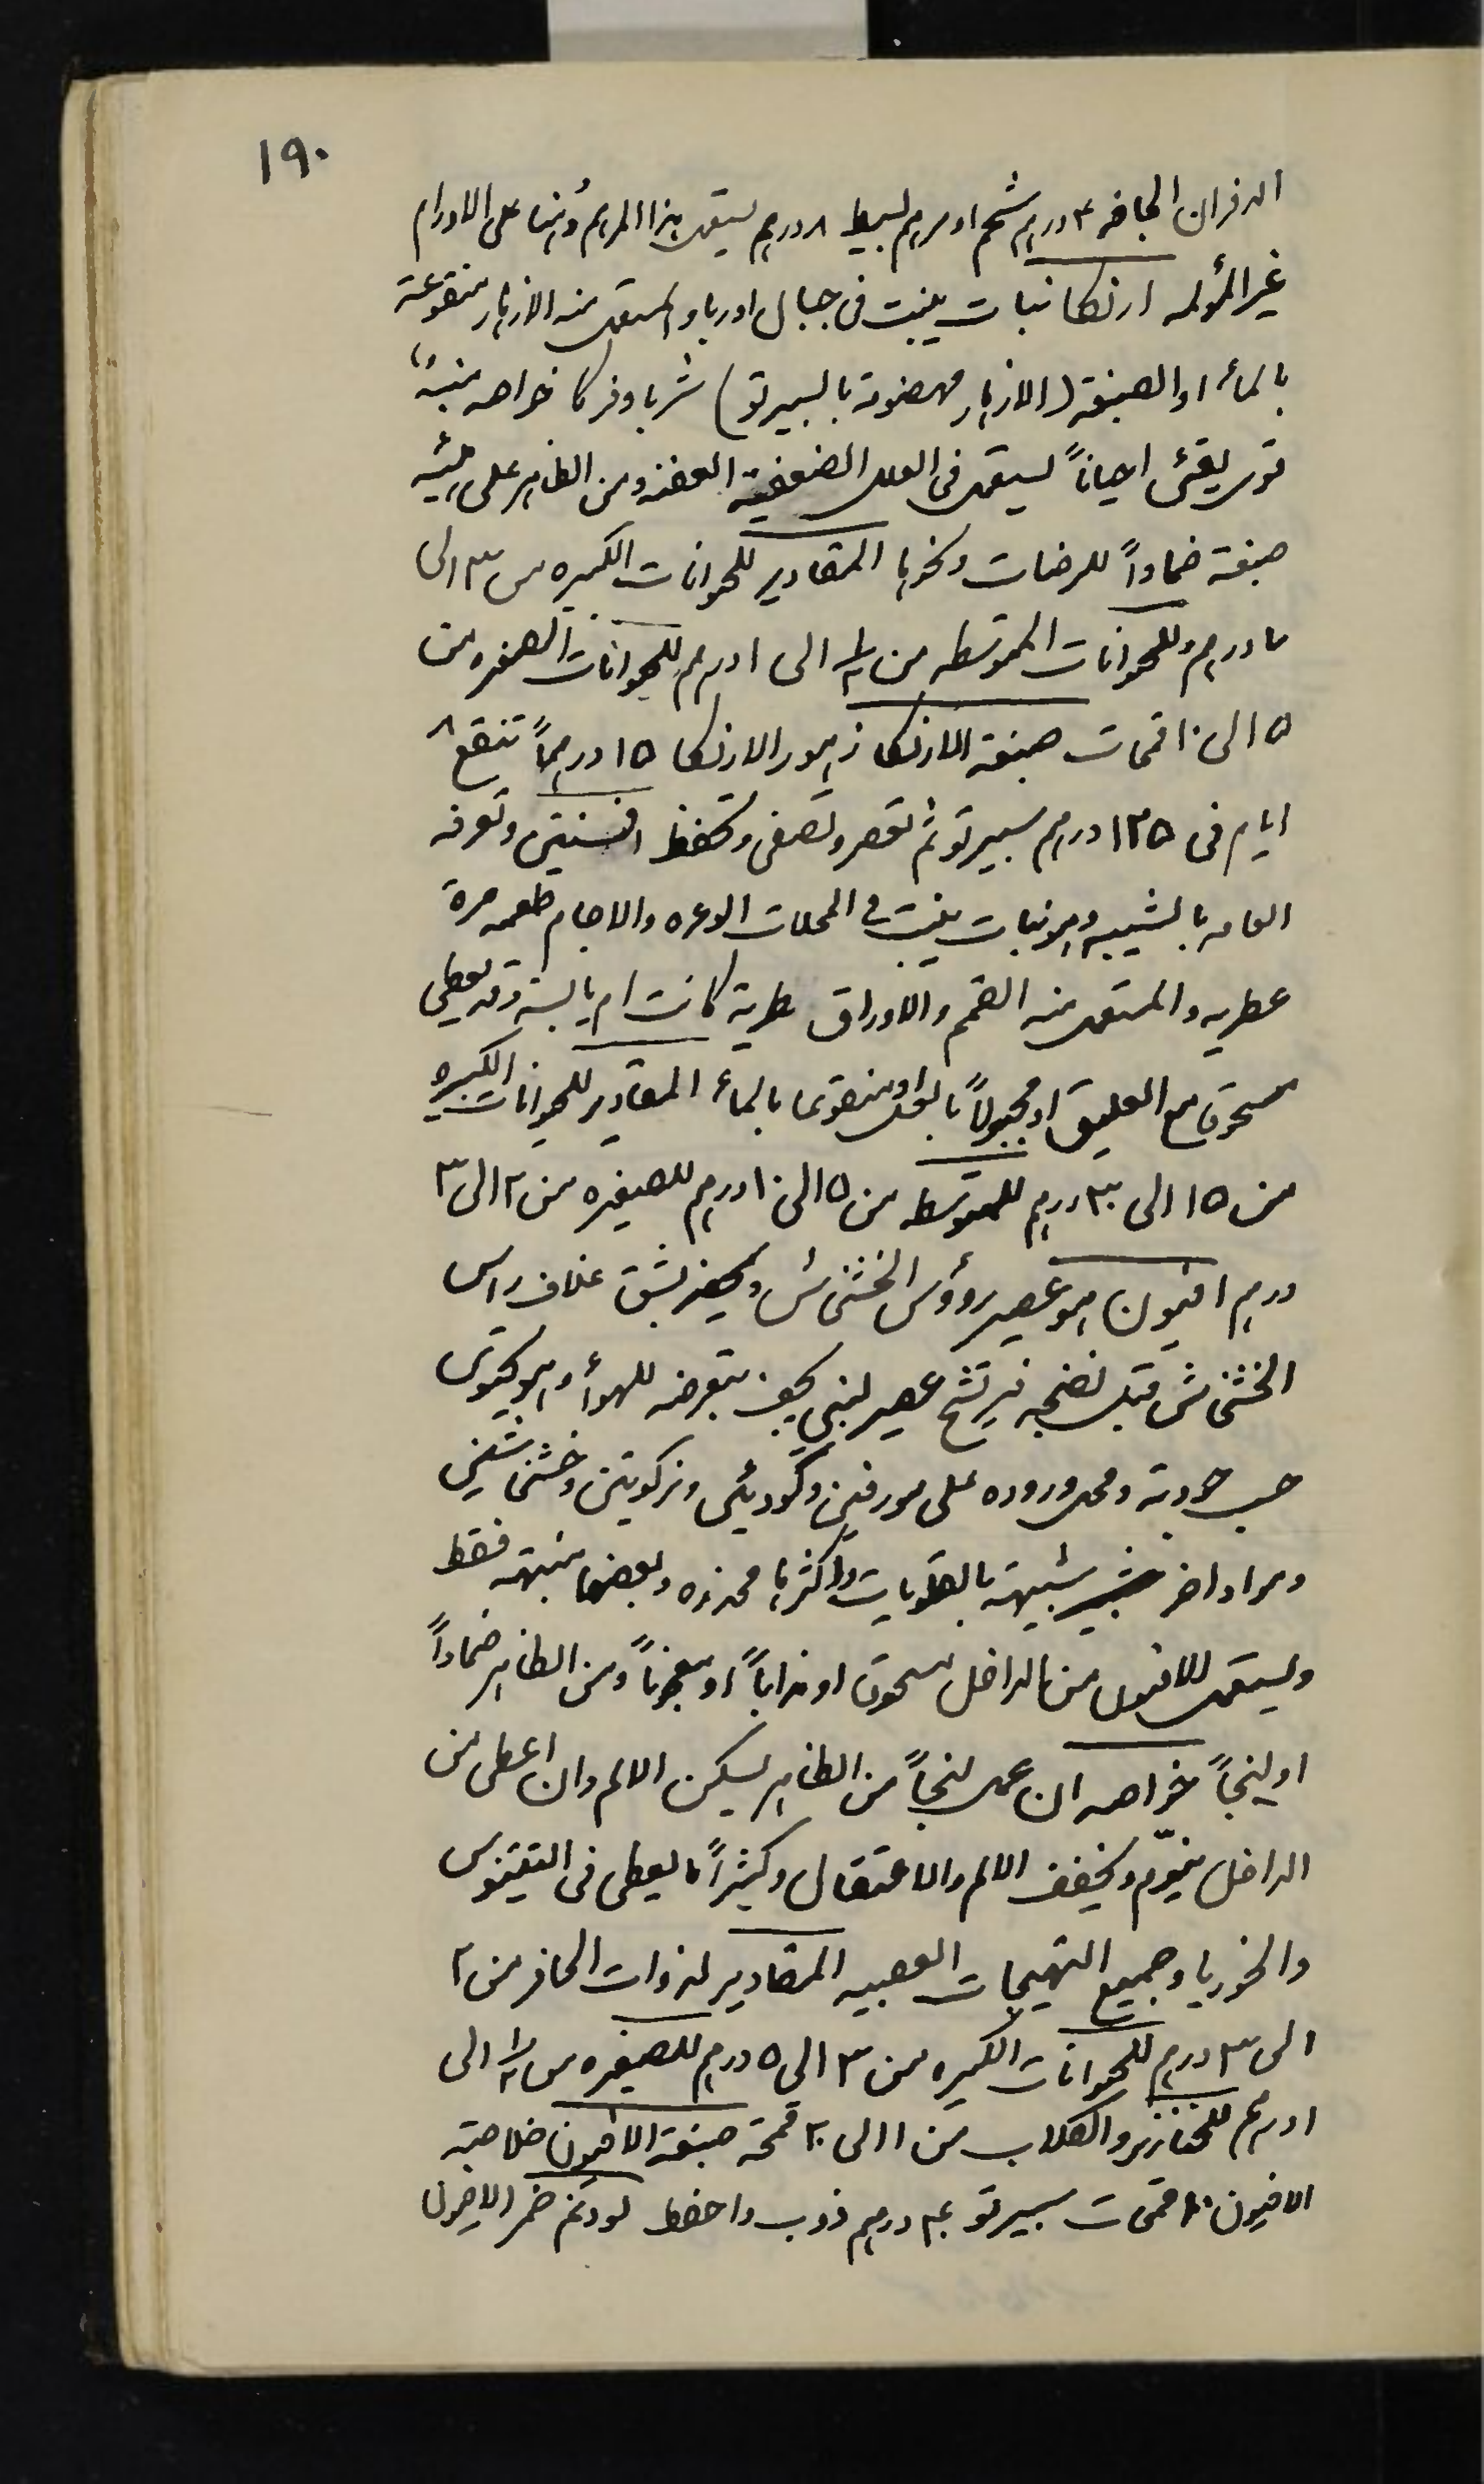 ١٩٠
الدفران الجافه ٤ درهم شحم او مرهم بسيط ٨ درهم يستعمل هذا المرهم دُهنا على الاورام
غير المؤلمه ارنكا نبات ينبت فى جبال اوربا والمستعمل منه الازهار منقوعة
بالماء او الصبغة (الازهار مهضومة بالسبيرتو) شربا وفركا خواصه منبه
قوى يقئ احياناً يستعمل فى العلل الضعفية العفنه ومن الظاهر على هيئه
صبغة ضماداً للرضات ونحوها المقادير للحيوانات الكبيره من ٣ الى
٦ درهم وللحيوانات المتوسطه من ١/٢ الى ١ درهم للحيوانات الصغيره من
٥ الى ١٠ قمحات صبغة الارنكا زهور الارنكا ١٥ درهماً تنقع ٨
ايام فى ١٢٥ درهم سبيرتو ثم تعصر وتصفى وتحفظ افسنتين وتعرفه
العامه بالشيبه وهو نبات ينبت في المحلات الوعره والاجام طعمه مرة
عطريه والمستعمل منه القمم والاوراق طرية كانت ام يابسة وقد يعطى
مسحوقا مع العليق او مجبولاً بالعسل او منقوعا بالماء المقادير للحيوانات الكبيره
من ١٥ الى ٣٠ درهم للمتوسطه من ٥ الى ١٠ درهم للصغيره من ٢ الى ٣
درهم افيون هو عصير رؤوس الخشخاش ويحضر بشق غلاف راس
الخشخاش قبل نضجه فيرتشح عصير لبني يجف بتعرضه للهواء وهو يحتوى
حسب جودته ومحل وروده على مورفين وكوديئين ونركوتين وخشخاشين
ومواد اخر شبيهة بالقلويات واكثرها مخدره وبعضها منبهه فقط
ويستعمل للافيون من الداخل مسحوقا او مذاباً او معجوناً ومن الظاهر ضماداً
او لبخاً خواصه ان عمل لبخاً من الظاهر يسكن الالم وان اعطى من
الداخل ينوّم ويخفف الالم والاعتقال وكثيراً ما يعطى فى التيتنوس
والخوريا وجميع التهيجات العصبيه المقادير لذوات الحافر من ٢
الى ٣ درهم للحيوانات الكبيره من ٣ الى ٥ درهم للصغيره من ١/٢ الى
١ درهم للخنازير والكلاب من ١ الى ٢٠ قمحة صبغة الافيون خلاصة
الافيون ١٠ قمحات سبيرتو ٤ درهم ذوب واحفظ لودنم خمر الافيون